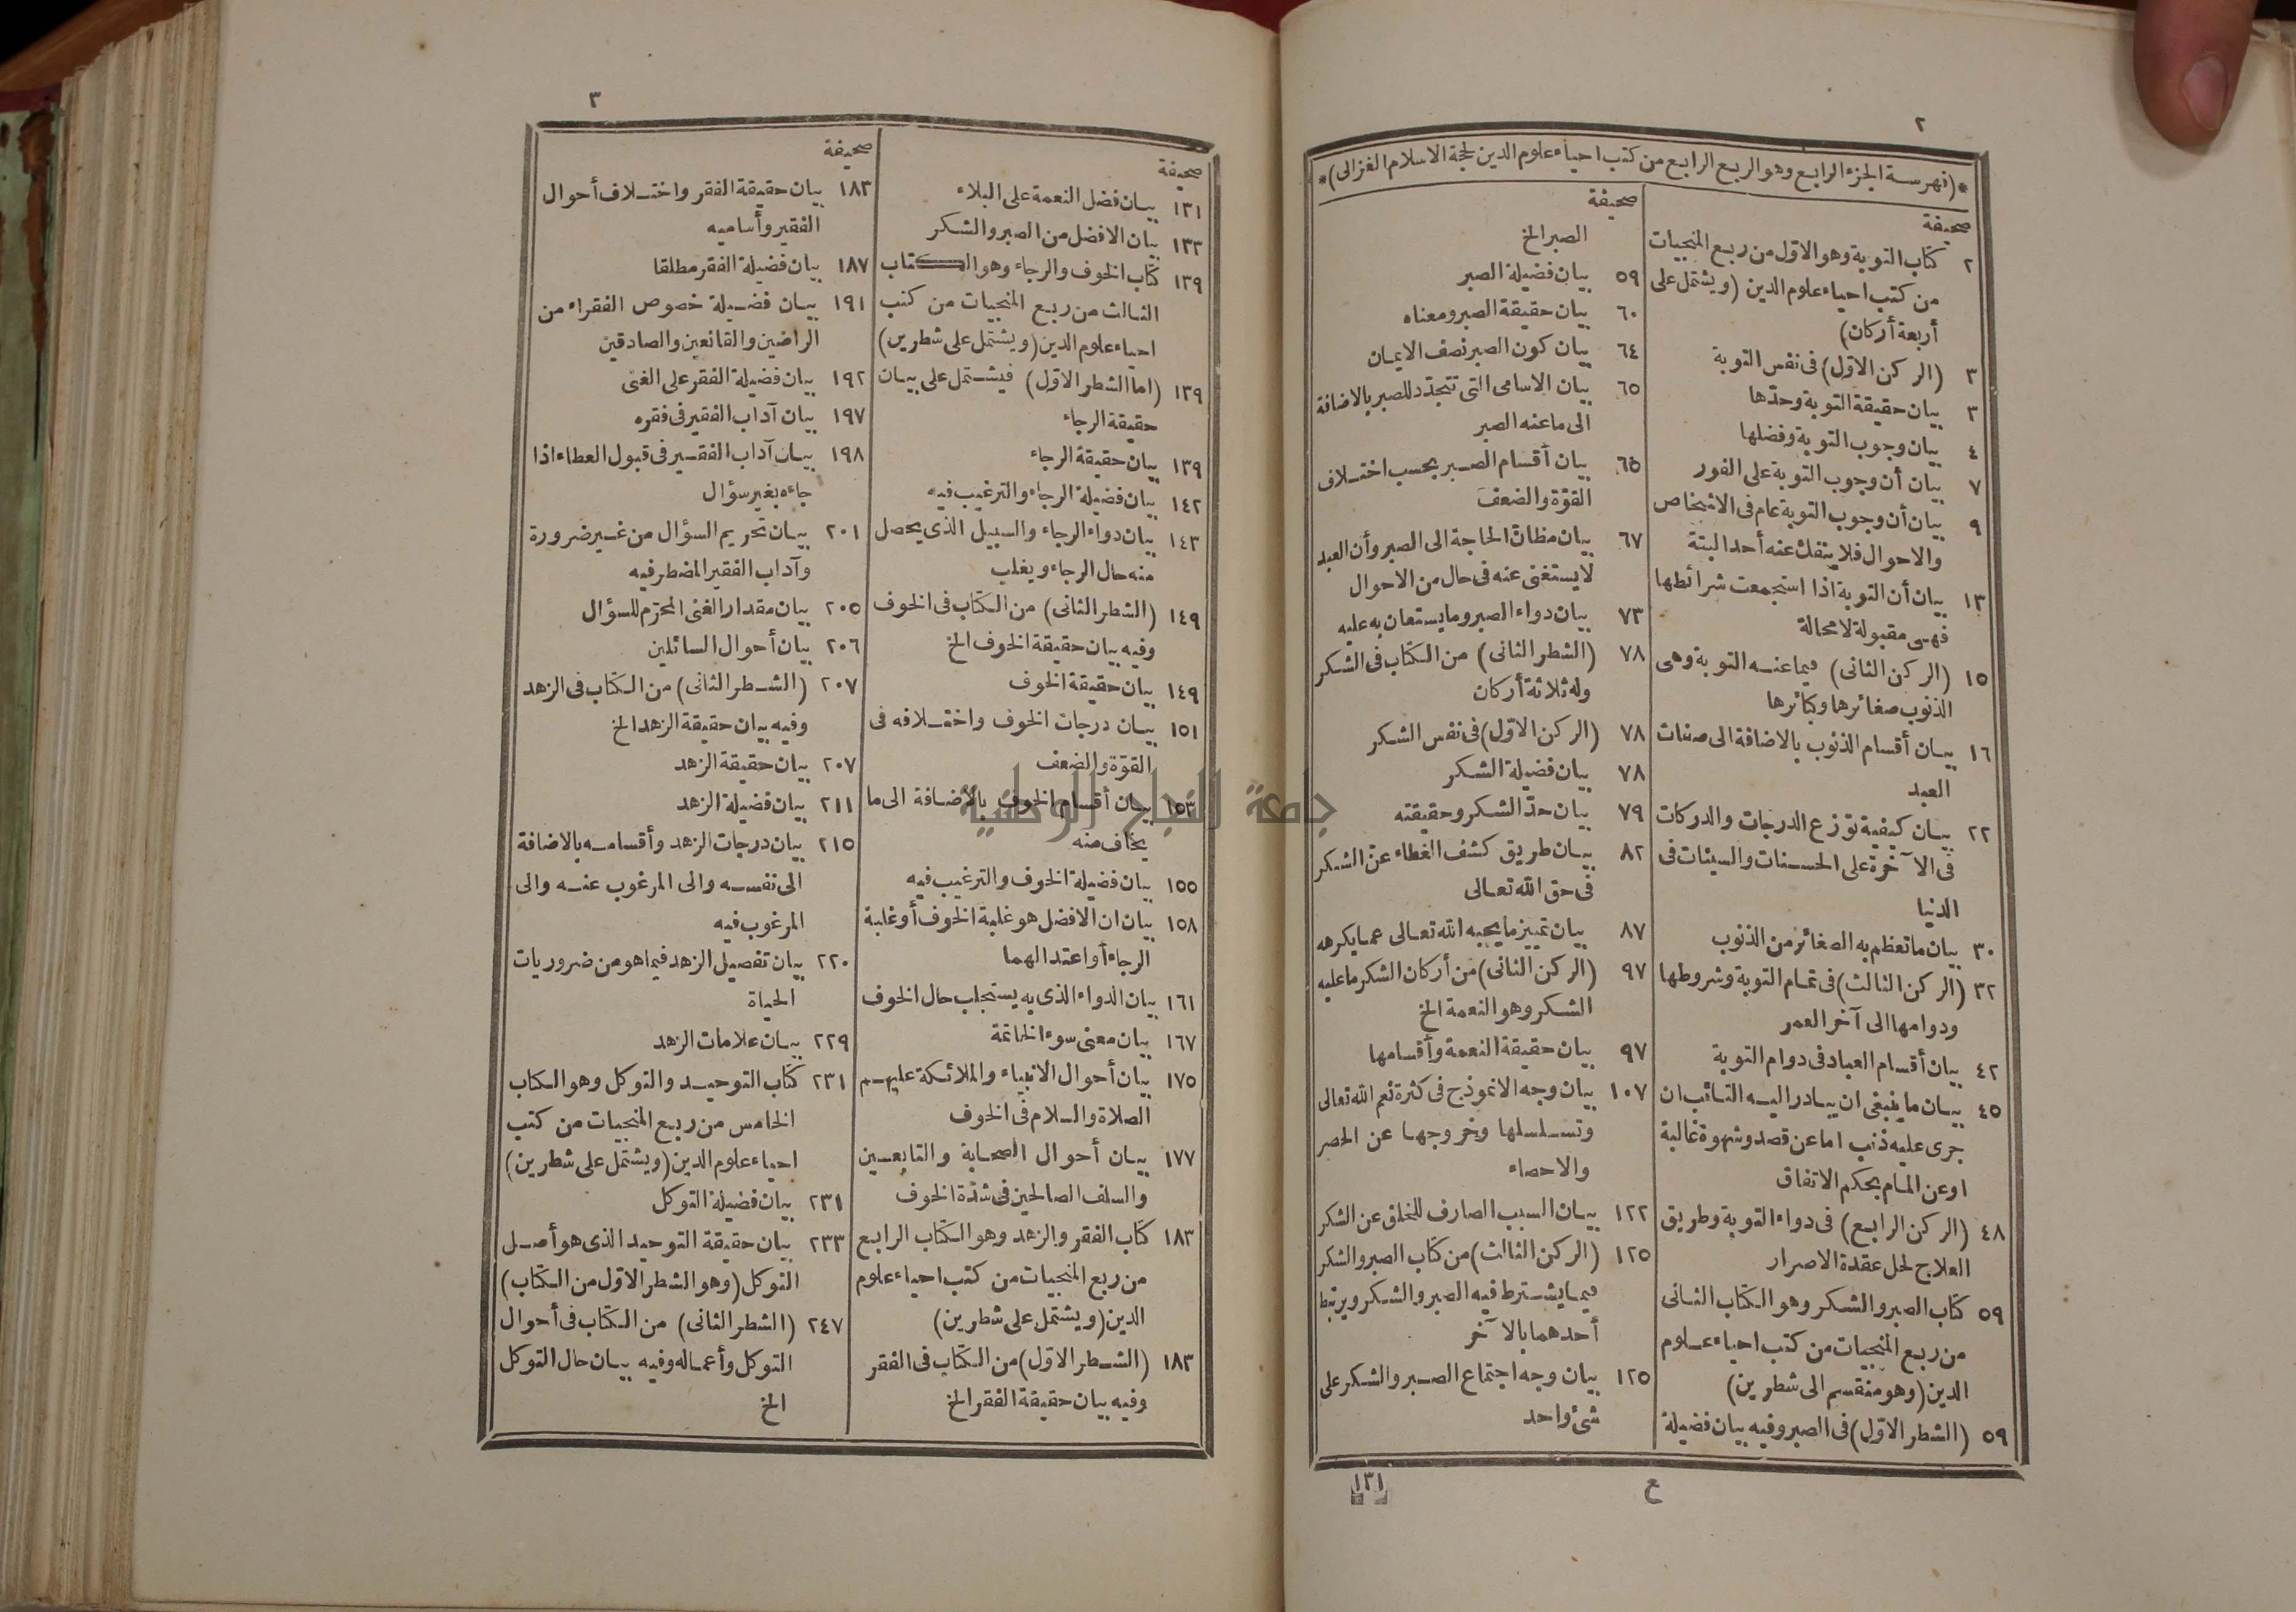 ٢
*(فهرسة الجزء الرابع وهو الربع الرابع من كتب احياء علوم الدين لحجة الاسلام الغزالى)*
صحيفة
٢ كتاب التوبة وهو الاوّل من ربع المنجيات
من كتب احياء علوم الدين (ويشتمل على
أربعة أركان)
٣ (الركن الاوّل) فى نفس التوبة
٣ بيان حقيقة التوبة وحدّها
٤ بيان وجوب التوبة وفضلها
٧ بيان أن وجوب التوبة على الفور
٩ بيان أن وجوب التوبة عام فى الاشخاص
والاحوال فلا ينفك عنه أحد البتة
١٣ بيان أن التوبة اذا استجمعت شرائطها
فهى مقبولة لا محالة
١٥ (الركن الثانى) فيما عنه التوبة وهى
الذنوب صغائرها وكبائرها
١٦ بيان أقسام الذنوب بالاضافة الى صفات
العبد
٢٢ بيان كيفية توزع الدرجات والدركات
فى الآخرة على الحسنات والسيئات فى
الدنيا
٣٠ بيان ما تعظم به الصغائر من الذنوب
٣٢ (الركن الثالث) فى تمام التوبة وشروطها
ودوامها الى آخر العمر
٤٢ بيان أقسام العباد فى دوام التوبة
٤٥ بيان ما ينبغى ان يبادر اليه التائب ان
جرى عليه ذنب اما عن قصد وشهوة غالبة
او عن المام بحكم الاتفاق
٤٨ (الركن الرابع) فى دواء التوبة وطريق
العلاج لحل عقدة الاصرار
٥٩ كتاب الصبر والشكر وهو الكتاب الثانى
من ربع المنجيات من كتب احياء علوم
الدين (وهو منقسم الى شطرين)
٥٩ (الشطر الاوّل) فى الصبر وفيه بيان فضيلة
صحيفة
الصبر الخ
٥٩ بيان فضيلة الصبر
٦٠ بيان حقيقة الصبر ومعناه
٦٤ بيان كون الصبر نصف الايمان
٦٥ بيان الاسامى التى تتجدّد للصبر بالاضافة
الى ما عنه الصبر
٦٥ بيان أقسام الصبر بحسب اختلاف
القوّة والضعف
٦٧ بيان مظانّ الحاجة الى الصبر وأن العبد
لا يستغنى عنه فى حال من الاحوال
٧٣ بيان دواء الصبر وما يستعان به عليه
٧٨ (الشطر الثانى) من الكتاب فى الشكر
وله ثلاثة أركان
٧٨ (الركن الاوّل) فى نفس الشكر
٧٨ بيان فضيلة الشكر
٧٩ بيان حدّ الشكر وحقيقته
٨٢ بيان طريق كشف الغطاء عن الشكر
فى حق الله تعالى
٨٧ بيان تمييز ما يحبه الله تعالى عما يكرهه
٩٧ (الركن الثانى) من أركان الشكر ما عليه
الشكر وهو النعمة الخ
٩٧ بيان حقيقة النعمة وأقسامها
١٠٧ بيان وجه الانموذج فى كثرة نعم الله تعالى
وتسلسلها وخروجها عن الحصر
والاحصاء
١٢٢ بيان السبب الصارف للخلق عن الشكر
١٢٥ (الركن الثالث) من كتاب الصبر والشكر
فيما يشترط فيه الصبر والشكر ويرتبط
أحدهما بالآخر
١٢٥ بيان وجه اجتماع الصبر والشكر على
شئ واحد
ع
١٣١
٣
صحيفة
١٣١ بيان فضل النعمة على البلاء
١٣٣ بيان الافضل من الصبر والشكر
١٣٩ كتاب الخوف والرجاء وهو الكتاب
الثالث من ربع المنجيات من كتب
احياء علوم الدين (ويشتمل على شطرين)
١٣٩ (اما الشطر الاوّل) فيشتمل على بيان
حقيقة الرجاء
١٣٩ بيان حقيقة الرجاء
١٤٢ بيان فضيلة الرجاء والترغيب فيه
١٤٣ بيان دواء الرجاء والسبيل الذى يحصل
منه حال الرجاء ويغلب
١٤٩ (الشطر الثانى) من الكتاب فى الخوف
وفيه بيان حقيقة الخوف الخ
١٤٩ بيان حقيقة الخوف
١٥١ بيان درجات الخوف واختلافه فى
القوّة والضعف
١٥٣ بيان أقسام الخوف بالاضافة الى ما
يخاف منه
١٥٥ بيان فضيلة الخوف والترغيب فيه
١٥٨ بيان ان الافضل هو غلبة الخوف أو غلبة
الرجاء أو اعتدالهما
١٦١ بيان الدواء الذى به يستجلب حال الخوف
١٦٧ بيان معنى سوء الخاتمة
١٧٥ بيان أحوال الانبياء والملائكة عليهم
الصلاة والسلام فى الخوف
١٧٧ بيان أحوال الصحابة والتابعين
والسلف الصالحين فى شدّة الخوف
١٨٣ كتاب الفقر والزهد وهو الكتاب الرابع
من ربع المنجيات من كتب احياء علوم
الدين (ويشتمل على شطرين)
١٨٣ (الشطر الاوّل) من الكتاب فى الفقر
وفيه بيان حقيقة الفقر الخ
صحيفة
١٨٣ بيان حقيقة الفقر واختلاف أحوال
الفقير وأساميه
١٨٧ بيان فضيلة الفقر مطلقا
١٩١ بيان فضيلة خصوص الفقراء من
الراضين والقانعين والصادقين
١٩٢ بيان فضيلة الفقر على الغنى
١٩٧ بيان آداب الفقير فى فقره
١٩٨ بيان آداب الفقير فى قبول العطاء اذا
جاءه بغير سؤال
٢٠١ بيان تحريم السؤال من غير ضرورة
وآداب الفقير المضطر فيه
٢٠٥ بيان مقدار الغنى المحرّم للسؤال
٢٠٦ بيان أحوال السائلين
٢٠٧ (الشطر الثانى) من الكتاب فى الزهد
وفيه بيان حقيقة الزهد الخ
٢٠٧ بيان حقيقة الزهد
٢١١ بيان فضيلة الزهد
٢١٥ بيان درجات الزهد وأقسامه بالاضافة
الى نفسه والى المرغوب عنه والى
المرغوب فيه
٢٢٠ بيان تفصيل الزهد فيما هو من ضروريات
الحياة
٢٢٩ بيان علامات الزهد
٢٣١ كتاب التوحيد والتوكل وهو الكتاب
الخامس من ربع المنجيات من كتب
احياء علوم الدين (ويشتمل على شطرين)
٢٣١ بيان فضيلة التوكل
٢٣٣ بيان حقيقة التوحيد الذى هو أصل
التوكل (وهو الشطر الاوّل من الكتاب)
٢٤٧ (الشطر الثانى) من الكتاب فى أحوال
التوكل وأعماله وفيه بيان حال التوكل
الخ
جامعة النجاح الوطنية